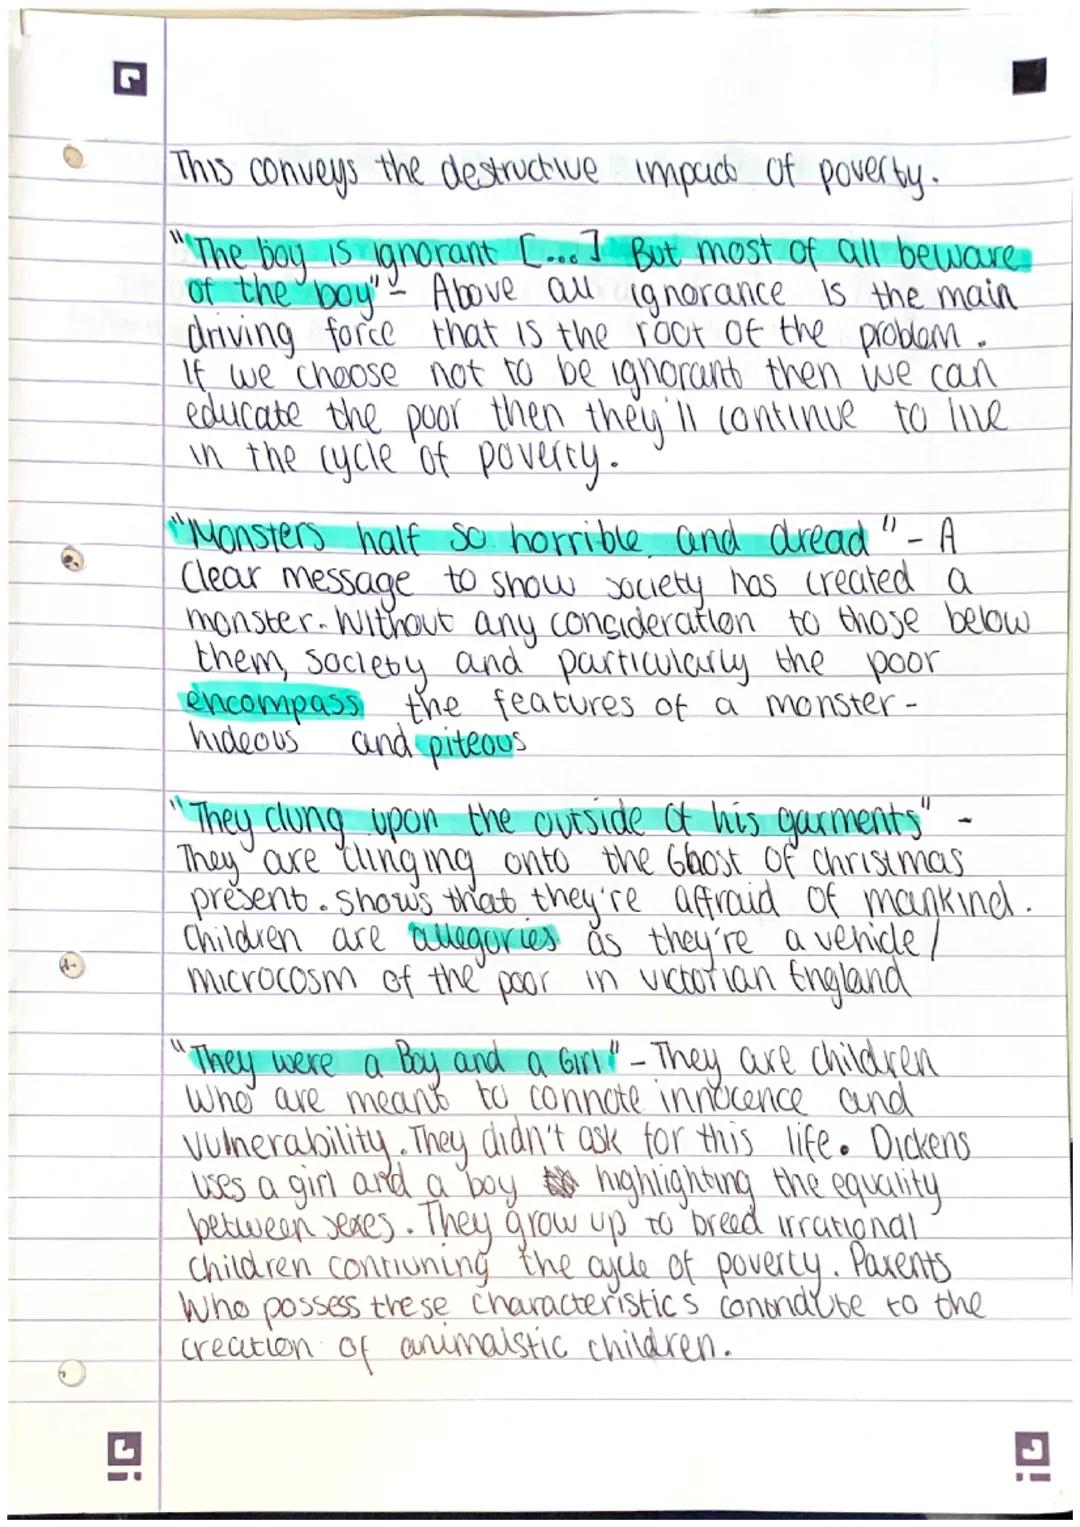 This conveys the destructive impact of poverty.
"The boy is ignorant [...] But most of all beware
of the boy" - Above all ignorance is the main
driving force that is the root of the problem.
If we choose not to be ignorant then we can
educate the poor then they'll continue to live
in the cycle of poverty.
"Monsters half so horrible and dread" - A
clear message to show society has created a
monster. Without any consideration to those below
them, society and particularly the poor
encompass the features of a monster -
hideous and piteous
"They clung upon the outside of his garments" -
They are clinging onto the Ghost of Christmas
present. Shows that they're affraid of mankind.
Children are allegories as they're a vehicle/
microcosm of the poor in victorian England
"They were a Boy and a Girl" - They are children
who are meant to connote innocence and
vulnerability. They didn't ask for this life. Dickens
uses a girl and a boy highlighting the equality
between sexes. They grow up to breed irrational
children contiuning the cycle of poverty. Parents
who possess these characteristics contribute to the
creation of animalstic children.